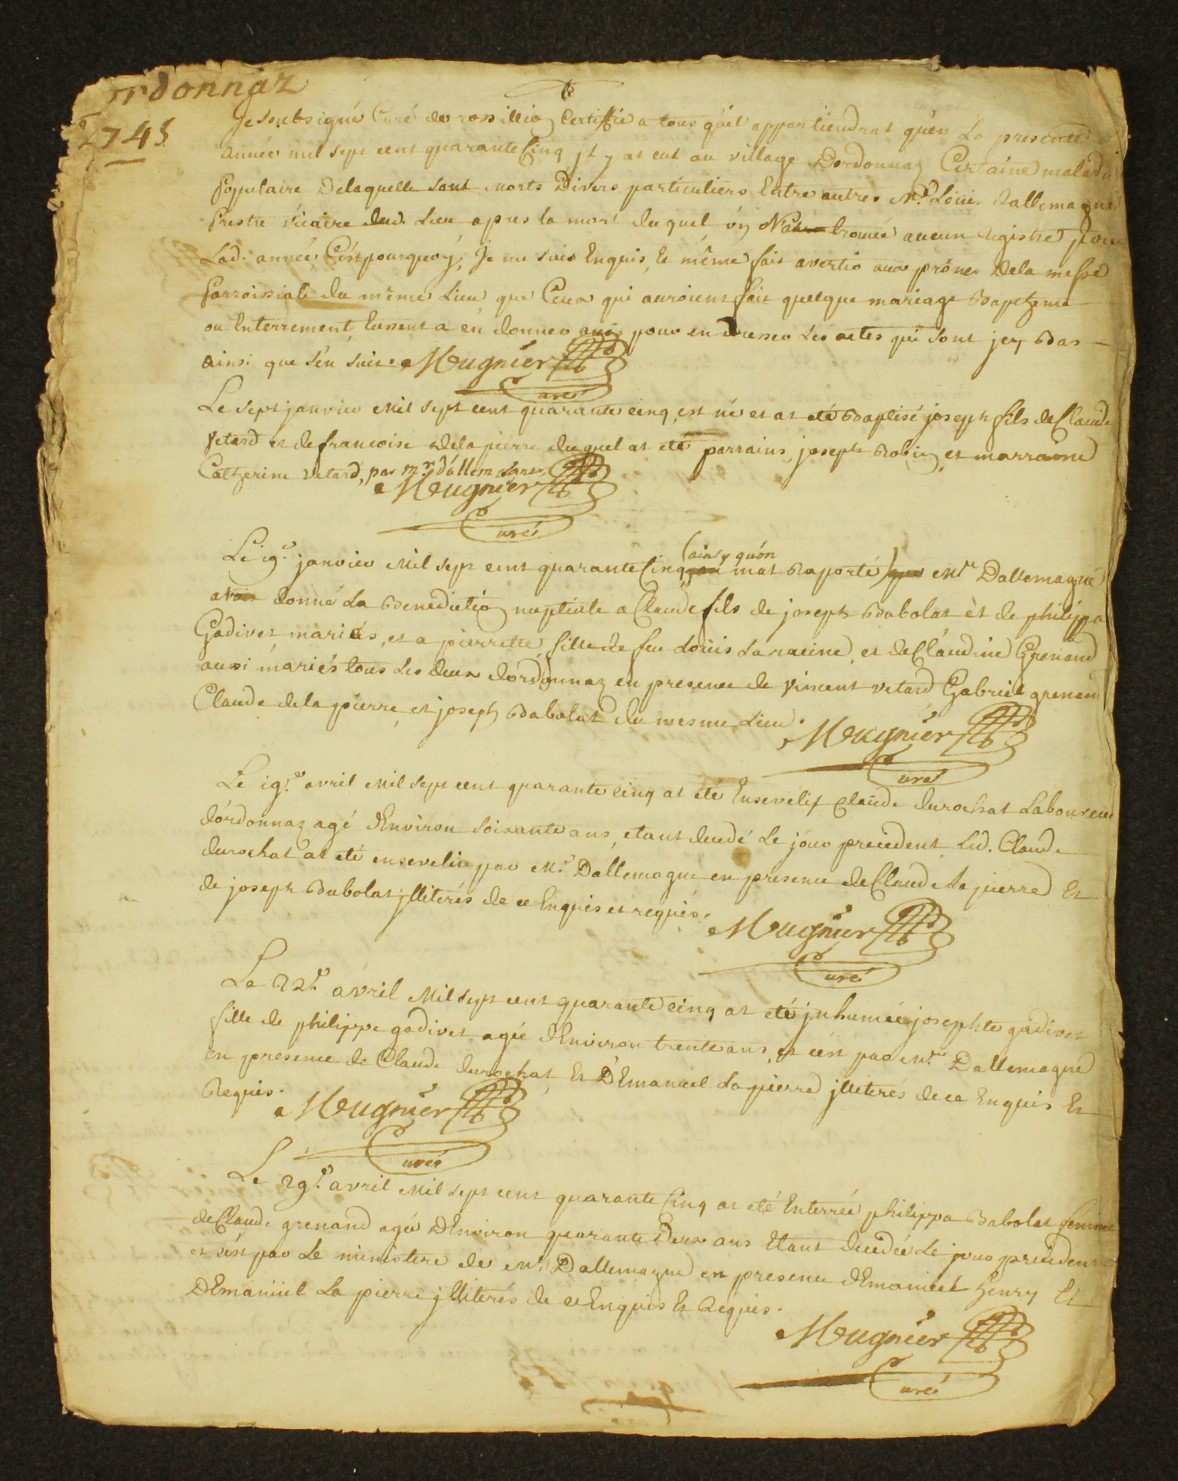 ordonnaz
1745
Je soubsigné Curé de rossillion Certiffie a tous qu'il appartiendrat qu'en La presente
année mil sept cent quarante Cinq jl y at eut au village Dordonnaz Certaine maladie
Populaire Delaquelle sont morts Divers particuliers Entre autres Mr. Loüis Dallemagne
Prestre Vicaire dud. Lieu apres la mort duquel on trouvé aucun Registre pour
Lad. année, C'est pourquoÿ, Je me suis Enquis, Et même fait avertir aux prônes Dela messe
Parroissiale du même Lieu que Ceux qui auroient fait quelque mariage Baptzeme
ou Enterrement, Eussent a en donner avis pour en Dresser Les actes qui sont jcy Bas
ainsi que s'en suit Meugnier
curé
Le Sept janvier Mil sept cent quarante cinq, est né et at eté Baptisé joseph fils de Claude
Vetard et de francoise Dela pierre duquel at eté parrains joseph Robin, et marraine
Catherine Vetard, par mr d'allemagne
Meugnier
curé
(ainsy qu'on
Le 19e. janvier Mil Sept cent quarante Cinq mat Raporté) Mr. Dallemagne
a donné La Benediction nuptiale a Claude fils de joseph Babolat èt de philippa
Gadivet mariés, et a pierrette fille de feu Loüis Laracine, et de Claudine Grenand
aussi mariés tous Les deux dordonnaz en presence de Vincent Vetard Gabriel grenand
Claude dela pierre et joseph Babolat du mesme Lieu.
Meugnier
curé
Le 19e. avril Mil Sept cent quarante cinq at eté Ensevelis Claude durochat Laboureur
dordonnaz agé d'Environ soixante ans, etant decedé Le jour precedent Led. Claude
durochat at eté ensevelis par Mr. Dallemagne en presence de Claude La pierre Et
de joseph Babolat jlliterés de ce Enquis et requis.
Meugnier
curé
Le 22e. avril Mil Sept cent quarante cinq at eté jnhumée josephte gadivet
fille de philippe gadivet agée d'Environ trente ans, et c'est par Mr. Dallemagne
en presence de Claude durochat Et D'Emanuel La pierre jlliterés de ce Enquis Et
Requis.
Meugnier
curé
Le 29e. avril Mil Sept cent quarante Cinq at eté Enterrée philippa Babolat femme
de Claude grenand agée D'Environ quarante Deux ans Etant decedée Le jour precedent
et c'est par Le ministere de Mr. Dallemagne en presence d'Emanuel Henry Et
D'Emanuel La pierre jlliterés de ce Enquis Et Requis.
Meugnier
curé